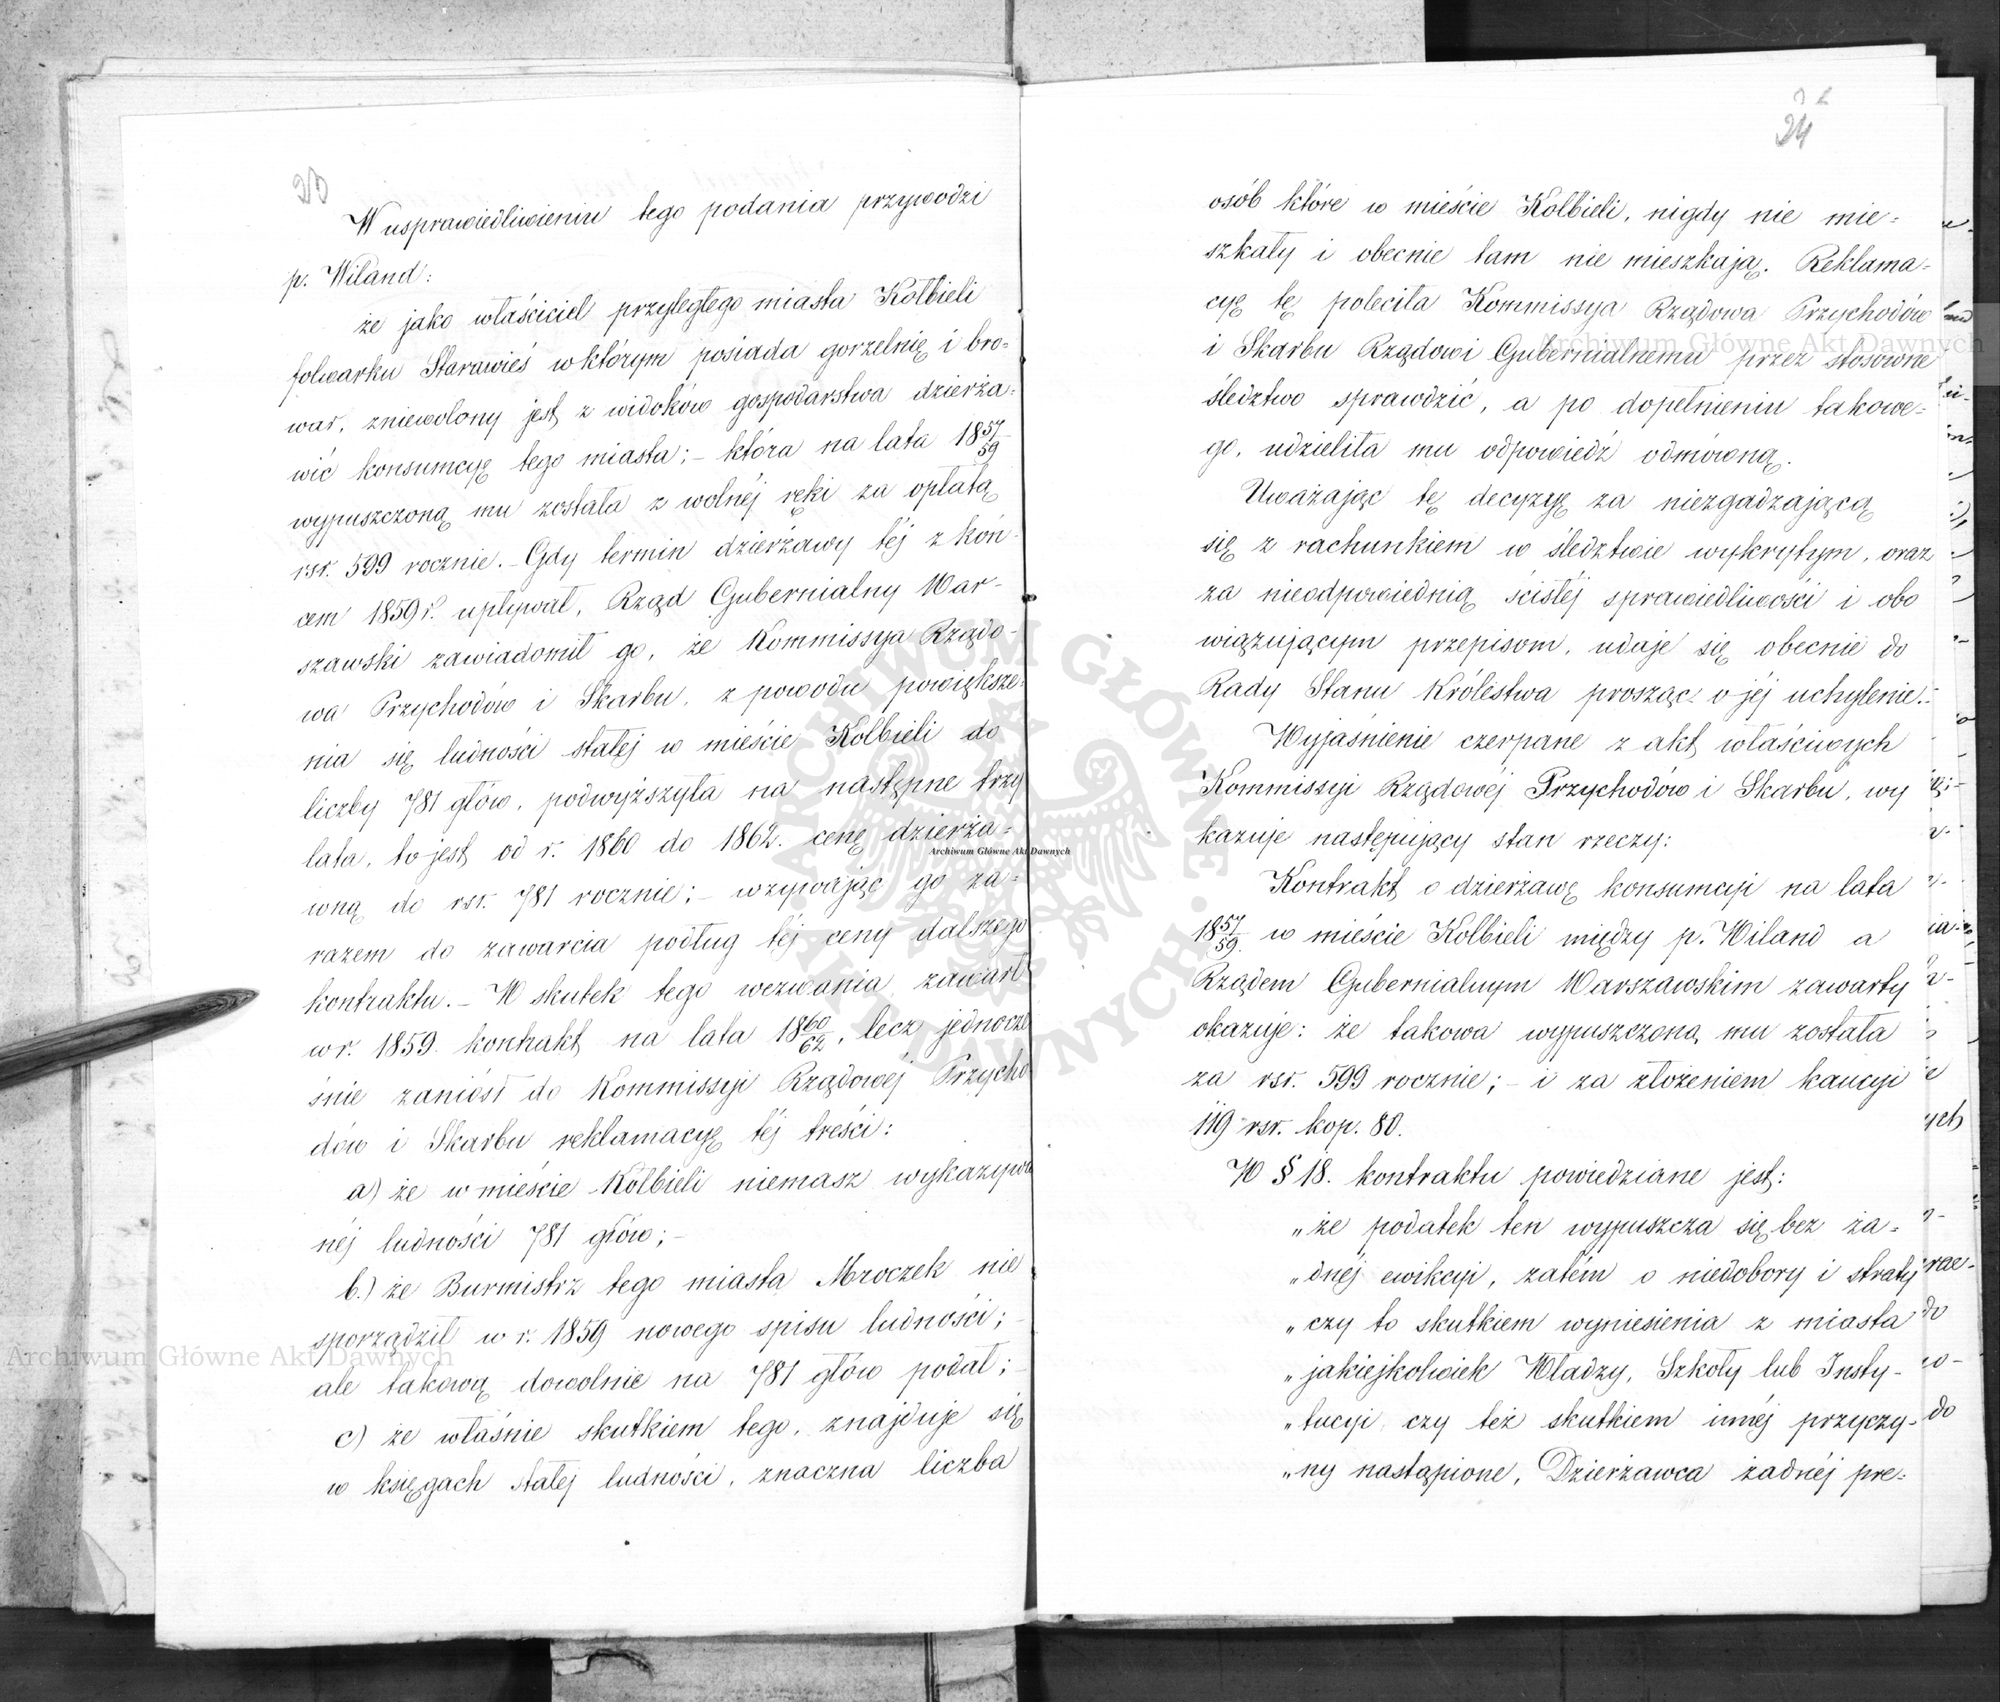 23
W usprawiedliwieniu tego podania przywodzi
p. Wiland:
że jako właściciel przyległego miasta Kołbieli
folwarku Starawieś w którym posiada gorzelnię i bro-
war, zniewolony jest z widoków gospodarstwa dzierża-
wić konsumcyę tego miasta; – która na lata 1857/59
wypuszczoną mu została z wolnéj ręki za opłatą
rsr. 599 rocznie. – Gdy termin dzierżawy téj z koń-
cem 1859 r. upływał, Rząd Gubernialny War-
szawski zawiadomił go, że Kommissya Rządo-
wa Przychodów i Skarbu, z powodu powiększe-
nia się ludności stałej w mieście Kolbieli do
liczby 781 głów, podwyższyła na następne trzy
lata, to jest od r. 1860 do 1862. cenę dzierża-
wną do rsr. 781 rocznie; – wzywając go za-
razem do zawarcia podług téj ceny dalszego
kontraktu. – W skutek tego wezwania zawarł
w r. 1859. kontrakt na lata 1860/62, lecz jednocze
śnie zaniósł do Kommissyi Rządowéj Przycho
dów i Skarbu reklamacyę téj treści:
a) że w mieście Kolbieli niemasz wykazywa
néj ludności 781 głów; –
b.) że Burmistrz tego miasta Mroczek nie
sporządził w r. 1859 nowego spisu ludności; –
ale takową dowolnie na 781 głów podał; –
c) że właśnie skutkiem tego, znajduje się
w księgach stałej ludności, znaczna liczba
24
osób które w mieście Kolbieli, nigdy nie mie-
szkały i obecnie tam nie mieszkają. Reklama-
cyę tę poleciła Kommissya Rządowa Przychodów
i Skarbu Rządowi Gubernialnemu przez stosowne
śledztwo sprawdzić, a po dopełnieniu takowe-
go, udzieliła mu odpowiedź odmówną.
Uważając tę decyzyę za niezgadzającą
się z rachunkiem w śledztwie wykrytym, oraz
za nieodpowiednią ścisłéj sprawiedliwości i obo
wiązującym przepisom, udaje się obecnie do
Rady Stanu Królestwa prosząc o jéj uchylenie. –
Wyjaśnienie czerpane z akt właściwych
Kommissyi Rządowéj Przychodów i Skarbu, wy
kazuje następujący stan rzeczy:
Kontrakt o dzierżawę konsumcyi na lata
1857/59. w mieście Kolbieli między p. Wiland a
Rządem Gubernialnym Warszawskim zawarty
okazuje: że takowa wypuszczoną mu została
za rsr. 599 rocznie; – i za złożeniem kaucyi
119 rsr. kop. 80.
W § 18. kontraktu powiedziane jest:
„że podatek ten wypuszcza się bez ża-
„dnéj ewikcyi, zatém o niedobory i straty
„czy to skutkiem wyniesienia z miasta
„jakiejkolwiek Władzy, Szkoły lub Insty-
„tucyi czy też skutkiem innéj przyczy-
„ny nastąpione, Dzierżawca żadnéj pre-
Archiwum Główne Akt Dawnych
Archiwum Główne Akt Dawnych
Archiwum Główne Akt Dawnych
ARCHIWUM GŁÓWNE AKT DAWNYCH